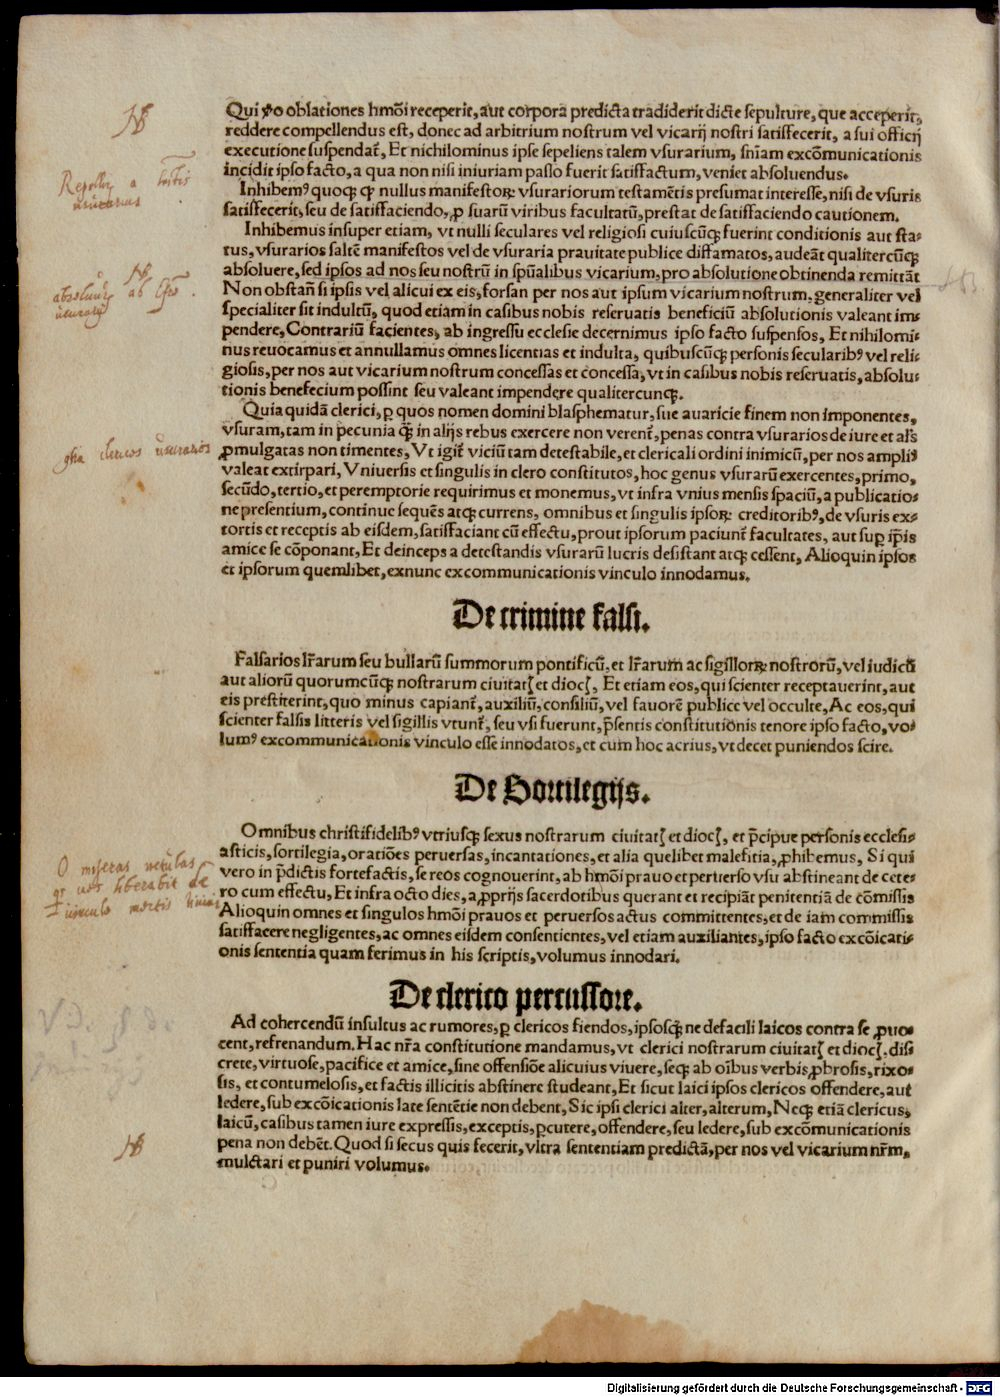 Qui v̓o oblationes hmōi receperit, aut corpora predicta tradiderit dicte sepulture, que acceperit,
reddere compellendus est, donec ad arbitrium nostrum vel vicarij nostri satisfecerit, a sui officij
executione suspendat᷑, Et nichilominus ipse sepeliens talem vsurarium, sn̄iam excōmunicationis
incidit ipso facto, a qua non nisi iniuriam passo fuerit satisfactum, veniet absoluendus.
Inhibemꝰ quoqꝫ ꝙ nullus manifestoꝝ vsurariorum testamētis presumat interesse, nisi de vsuris
satisfecerit, seu de satisfaciendo, ꝓ suarū viribus facultatū, prestat de satisfaciendo cautionem.
Inhibemus insuper etiam, vt nulli seculares vel religiosi cuiuscūqꝫ fuerint conditionis aut sta⸗
tus, vsurarios saltē manifestos vel de vsuraria prauitate publice diffamatos, audeāt qualitercūqꝫ
absoluere, sed ipsos ad nos seu nostrū in spūalibus vicarium, pro absolutione obtinenda remittāt
Non obstan̄ si ipsis vel alicui ex eis, forsan per nos aut ipsum vicarium nostrum, generaliter vel
specialiter sit indultū, quod etiam in casibus nobis reseruatis beneficiū absolutionis valeant im⸗
pendere, Contrariū facientes, ab ingressu ecclesie decernimus ipso facto suspensos, Et nihilomi⸗
nus reuocamus et annullamus omnes licentias et indulta, quibuscūqꝫ personis secularibꝰ vel reli⸗
giosis, per nos aut vicarium nostrum concessas et concessa, vt in casibus nobis reseruatis, absolu⸗
tionis benefecium possint seu valeant impendere qualitercunqꝫ.
Quia quidā clerici, ꝑ quos nomen domini blasphematur, sue auaricie finem non imponentes,
vsuram, tam in pecunia ꝙ̄ in alijs rebus exercere non verent᷑, penas contra vsurarios de iure et al̓s
ꝓmulgatas non timentes, Vt igit᷑ viciū tam detestabile, et clericali ordini inimicū, per nos ampliꝰ
valeat extirpari, Vniuersis et singulis in clero constitutos, hoc genus vsurarū exercentes, primo,
secūdo, tertio, et peremptorie requirimus et monemus, vt infra vnius mensis spaciū, a publicatio⸗
ne presentium, continue sequēs atqꝫ currens, omnibus et singulis ipsoꝝ creditoribꝰ, de vsuris ex⸗
tortis et receptis ab eisdem, satisfaciant cū effectu, prout ipsorum paciunt᷑ facultates, aut suꝑ ip̄is
amice se cōponant, Et deinceps a detestandis vsurarū lucris desistant atqꝫ cessent, Alioquin ipsos
et ipsorum quemlibet, exnunc excommunicationis vinculo innodamus.
De crimine falsi.
Falsarios lr̄arum seu bullarū summorum pontificū, et lr̄arum ac sigilloꝝ nostrorū, vel iudicū
aut aliorū quorumcūqꝫ nostrarum ciuitatꝭ et diocꝭ, Et etiam eos, qui scienter receptauerint, aut
eis prestiterint, quo minus capiant᷑, auxiliū, consiliū, vel fauorē publice vel occulte, Ac eos, qui
scienter falsis litteris vel sigillis vtunt᷑, seu vsi fuerunt, p̄sentis constitutionis tenore ipso facto, vo⸗
lumꝰ excommunicationis vinculo esse innodatos, et cum hoc acrius, vt decet puniendos scire.
De Sortilegijs.
Omnibus christifidelibꝰ vtriusqꝫ sexus nostrarum ciuitatꝭ et diocꝭ, et p̄cipue personis ecclesi⸗
asticis, sortilegia, oratiōes peruersas, incantationes, et alia quelibet malefitia, ꝓhibemus, Si qui
vero in p̄dictis fortefactis, se reos cognouerint, ab hmōi prauo et peruerso vsu abstineant de cete⸗
ro cum effectu, Et infra octo dies, a ꝓprijs sacerdotibus querant et recipiāt penitentiā de cōmissis
Alioquin omnes et singulos hmōi prauos et peruersos actus committentes, et de iam commissis
satisfacere negligentes, ac omnes eisdem consentientes, vel etiam auxiliantes, ipso facto excōicati⸗
onis sententia quam ferimus in his scriptis, volumus innodari.
De clerico percussore.
Ad cohercendū insultus ac rumores, ꝑ clericos fiendos, ipsosqꝫ ne defacili laicos contra se ꝓuo⸗
cent, refrenandum. Hac nr̄a constitutione mandamus, vt clerici nostrarum ciuitatꝭ et diocꝭ. dis⸗
crete, virtuose, pacifice et amice, sine offensiōe alicuius viuere, seqꝫ ab oībus verbis ꝓbrosis, rixo⸗
sis, et contumelosis, et factis illicitis abstinere studeant, Et sicut laici ipsos clericos offendere, aut
ledere, sub excōicationis late sentētie non debent, Sic ipsi clerici alter, alterum, Neqꝫ etiā clericus,
laicū, casibus tamen iure expressis, exceptis, ꝑcutere, offendere, seu ledere, sub excōmunicationis
pena non debēt. Quod si secus quis fecerit, vltra sententiam predictā, per nos vel vicarium nr̄m,
mulctari et puniri volumus.
NB
usurarius
NB
absoluunt᷑ ab
NB
clericos usurarios
O miseras vetulas
vos liberabit de
vinculo mortis
NB
Digitalisierung gefördert durch die Deutsche Forschungsgemeinschaft - DFG